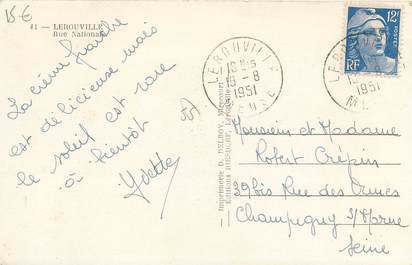 15 €
41 – LEROUVILLE
Rue Nationale
La crème fraiche
est délicieuse mais
le soleil est rare
à bientôt
Yvette
55
Imprimerie D. DELBOY, Mirecourt
Editions RIESDORF, Lerouville
LEROUVILLE
16-8
1951
MEUSE
12F
POSTES
RF
LEROUVILLE
1951
Monsieur et Madame
Robert Crépin
39bis Rue des Ormes
Champigny s/Marne
Seine